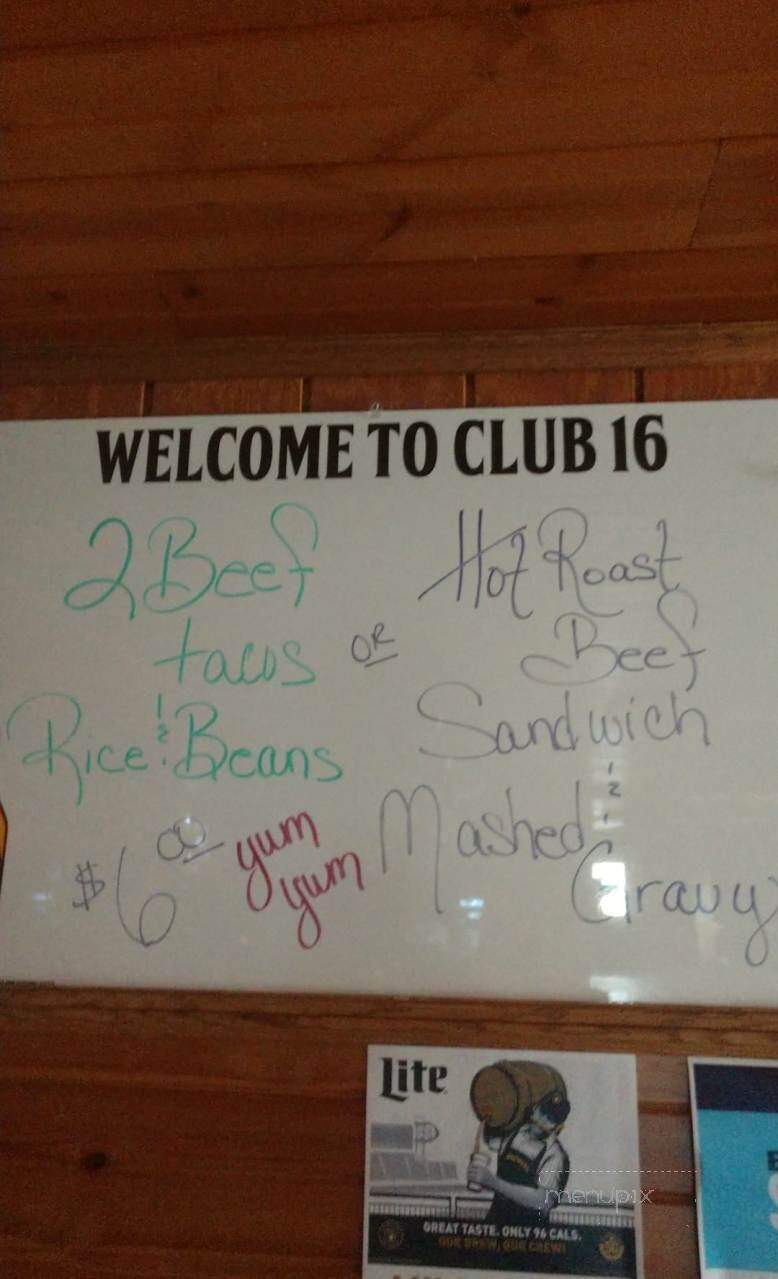 WELCOME TO CLUB 16
2 Beef
tacos
Rice & Beans
$6 00
yum
yum
OR
Hot Roast
Beef
Sandwich
Mashed &
Gravy
Lite
GREAT TASTE. ONLY 96 CALS.
OUR BREW, OUR CREW!
menupix